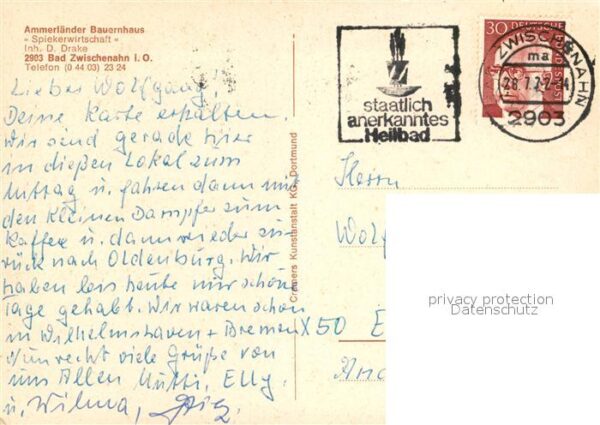 Ammerländer Bauernhaus
« Spiekerwirtschaft »
Inh. D. Drake
2903 Bad Zwischenahn i. O.
Telefon (0 44 03) 23 24
Lieber Wolfgang!
Deine Karte erhalten.
Wir sind gerade hier
in dießen Lokal zum
Mittag u. fahren dann mit
den kleinen Dampfer zum
Kaffee u. dann wieder zu-
rück nach Oldenburg. Wir
haben bis heute nur schöne
Tage gehabt. Wir waren schon
in Wilhelmshaven + Bremen
Nun recht viele Grüße von
uns Allen Mutti, Elly
u. Wilma,
Cramers Kunstanstalt KG, Dortmund
staatlich
anerkanntes
Heilbad
30 DEUTSCHE BUNDESPOST
ZWISCHENAHN
ma
28.7.72-14
2903
Herrn
Wolf
X50 E
privacy protection
Datenschutz